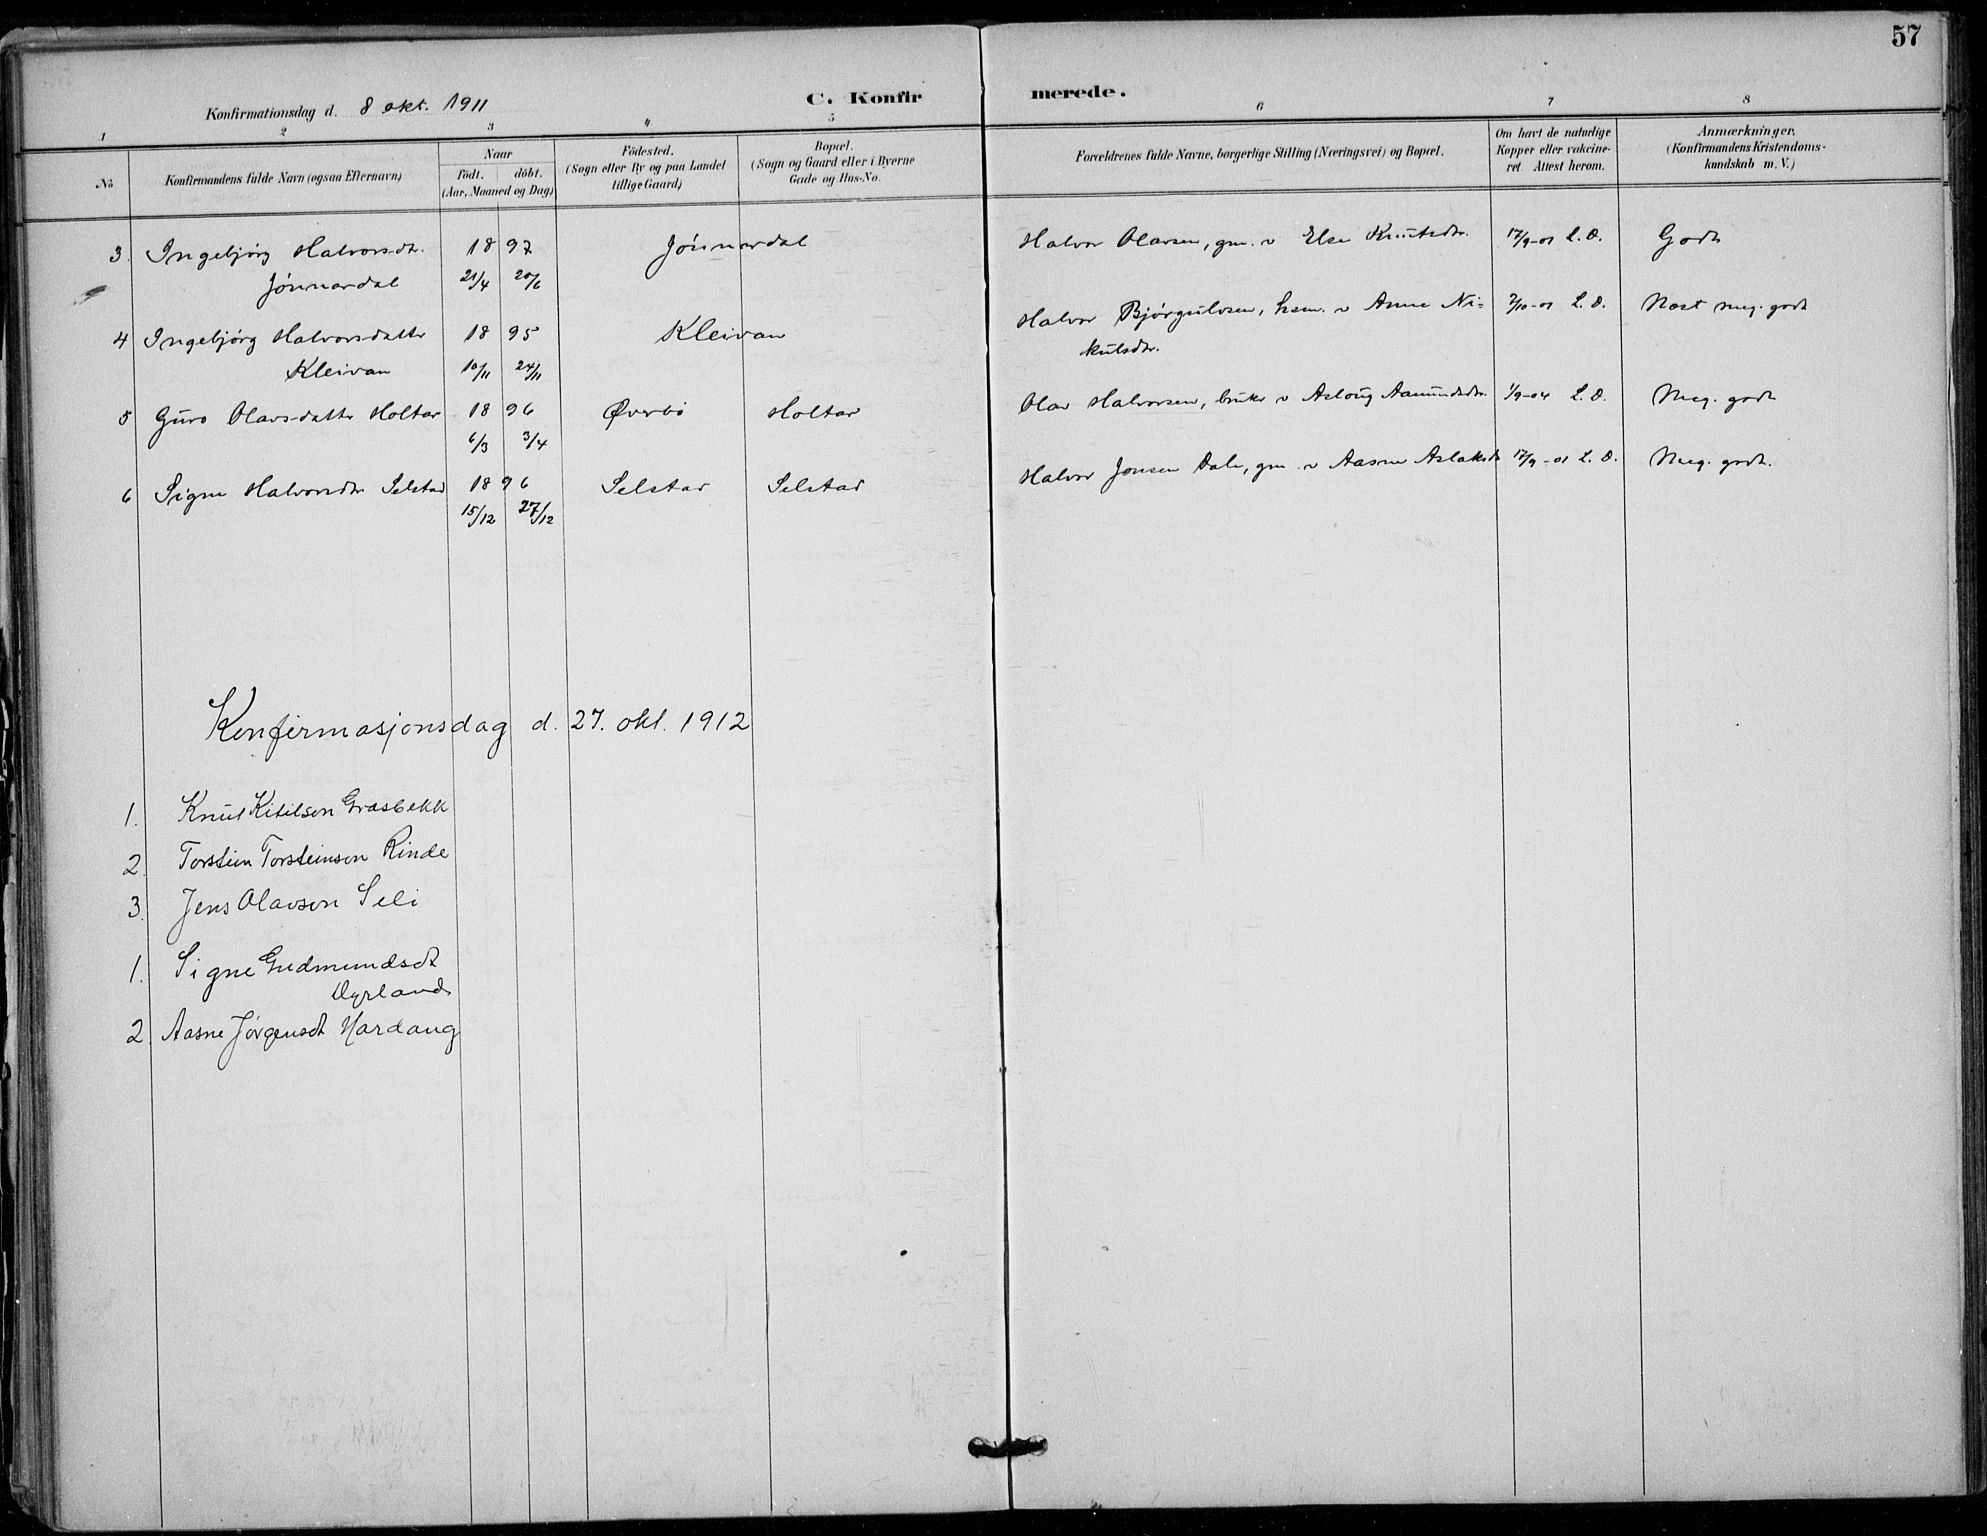 57
C. Konfirmerede.
Konfirmationsdag d. 8 okt. 1911
1 2 3 4 5 6 7 8
No
Konfirmandens fulde Navn (ogsaa Efternavn)
Naar
födt. döbt.
(Aar, Maaned og Dag)
Födested.
(Sogn eller By og paa Landet
tillige Gaard)
Bopæl.
(Sogn og Gaard eller i Byerne
Gade og Hus-No.
Forældrenes fulde Navne, borgerlige Stilling (Næringsvei) og Bopæl.
Om havt de naturlige
Kopper eller vakcine-
ret. Attest herom.
Anmærkninger.
(Konfirmandens Kristendoms-
kundskab m. V.)
3. Ingebjörg Halvorsdtr. 18 97 Jönnardal Halvor Olavsen, gm. v Else Knutsdtr. 17/9-01 L. D. Godt
Jönnardal 21/4 20/6
4 Ingebjörg Halvorsdatter 18 95 Kleivan Halvor Bjørgulvsen, hsm. v Anne Ni- 7/10-01 L. D. Næst meg. godt
Kleivan 10/11 24/11 kulsdtr.
5 Guro Olavsdatter Holtar 18 96 Øverbö Holtar Olav Halvorsen, bruker v Aslaug Aamundsdtr. 1/9-04 L. D. Meg. godt
6/3 3/4
6 Signe Halvorsdtr Selstad 18 96 Selstad Selstad Halvor Jonsen Dale, gm. v Aasne Aslaksdtr 17/9-01 L. D. Meg. godt.
15/12 27/12
Konfirmasjonsdag d. 27. okt. 1912
1. Knut Kitilson Grasbekk
2. Torstein Torsteinson Rinde
3. Jens Olavson Seli
1. Signe Gudmundsdt
Dyrland
2 Aasne Jörgensdt Hardang